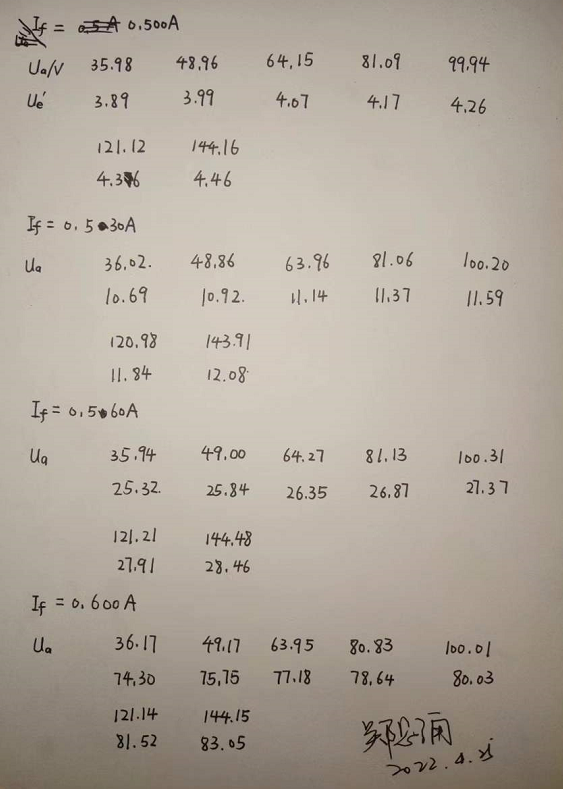 If = 0.500A
Ua/V 35.98 48.96 64.15 81.09 99.94
Ue' 3.89 3.99 4.07 4.17 4.26
121.12 144.16
4.36 4.46
If = 0.530A
Ua 36.02. 48.86 63.96 81.06 100.20
10.69 10.92. 11.14 11.37 11.59
120.98 143.91
11.84 12.08
If = 0.560A
Ua 35.94 49.00 64.27 81.13 100.31
25.32. 25.84 26.35 26.87 27.37
121.21 144.48
27.91 28.46
If = 0.600A
Ua 36.17 49.17 63.95 80.83 100.01
74.30 75.75 77.18 78.64 80.03
121.14 144.15
81.52 83.05
2022.4.